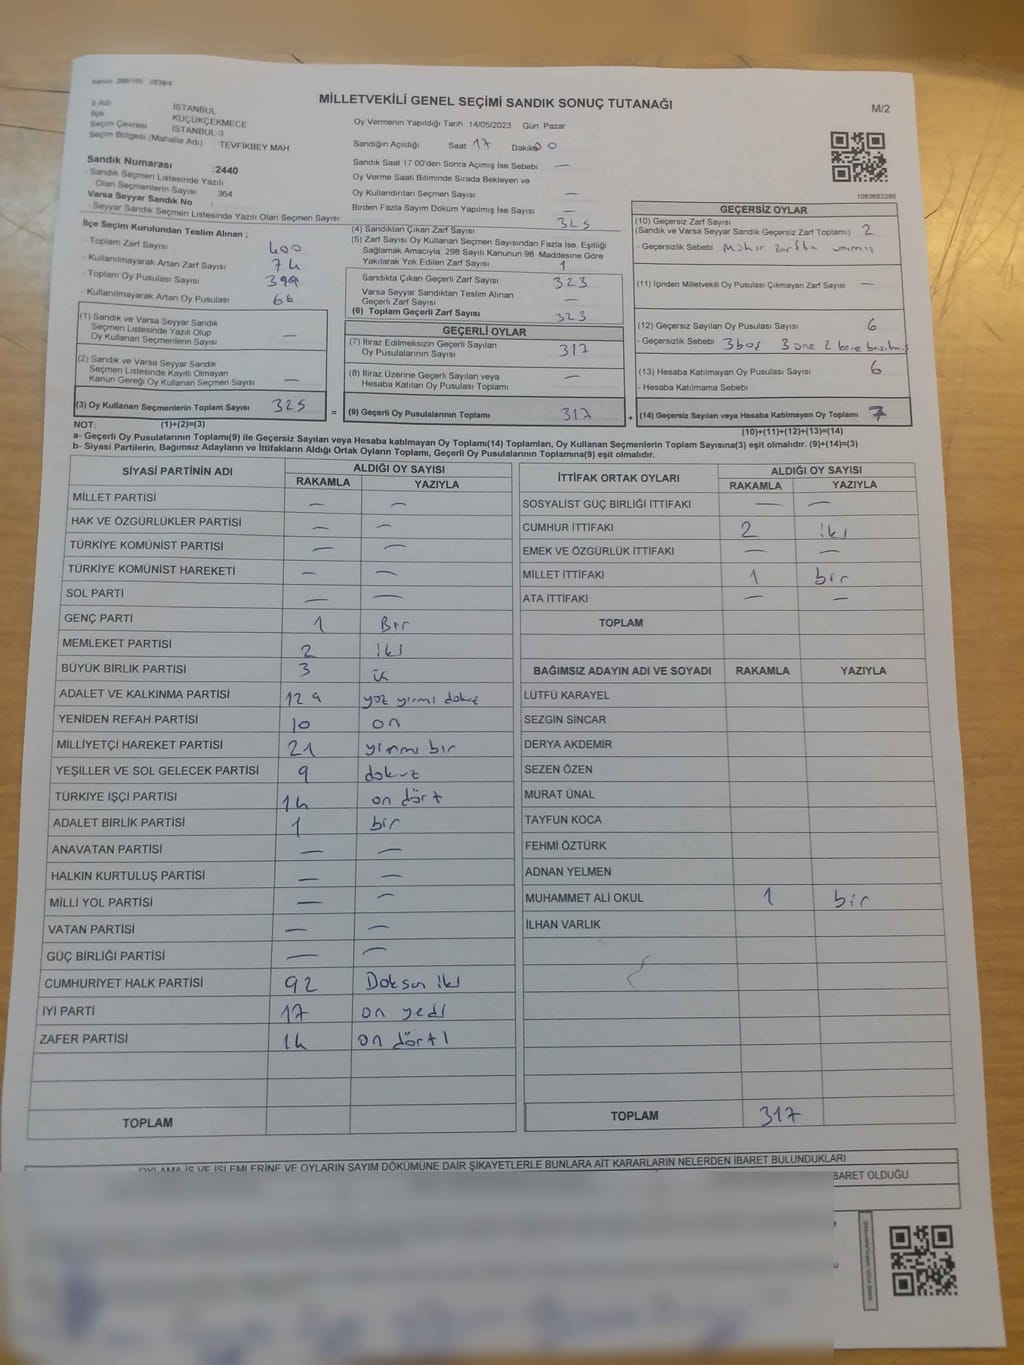 Kanun: 298/105 , 2839/4
MİLLETVEKİLİ GENEL SEÇİMİ SANDIK SONUÇ TUTANAĞI
M/2
İl Adı İSTANBUL
İlçe KÜÇÜKÇEKMECE
Seçim Çevresi İSTANBUL-3
Seçim Bölgesi (Mahalle Adı) TEVFİKBEY MAH
Sandık Numarası :2440
- Sandık Seçmen Listesinde Yazılı
Olan Seçmenlerin Sayısı 364
Varsa Seyyar Sandık No :
- Seyyar Sandık Seçmen Listesinde Yazılı Olan Seçmen Sayısı
Oy Vermenin Yapıldığı Tarih :14/05/2023 Gün: Pazar
Sandığın Açıldığı Saat 17 Dakika 00
Sandık Saat 17:00'den Sonra Açılmış İse Sebebi —
Oy Verme Saati Bitiminde Sırada Bekleyen ve
Oy Kullandırılan Seçmen Sayısı —
Birden Fazla Sayım Döküm Yapılmış İse Sayısı —
1083683290
İlçe Seçim Kurulundan Teslim Alınan ;
- Toplam Zarf Sayısı 400
- Kullanılmayarak Artan Zarf Sayısı 74
- Toplam Oy Pusulası Sayısı 399
- Kullanılmayarak Artan Oy Pusulası 66
(1) Sandık ve Varsa Seyyar Sandık
Seçmen Listesinde Yazılı Olup
Oy Kullanan Seçmenlerin Sayısı —
(2) Sandık ve Varsa Seyyar Sandık
Seçmen Listesinde Kayıtlı Olmayan
Kanun Gereği Oy Kullanan Seçmen Sayısı —
(3) Oy Kullanan Seçmenlerin Toplam Sayısı 325
(4) Sandıktan Çıkan Zarf Sayısı 325
(5) Zarf Sayısı Oy Kullanan Seçmen Sayısından Fazla İse, Eşitliği
Sağlamak Amacıyla, 298 Sayılı Kanunun 98. Maddesine Göre
Yakılarak Yok Edilen Zarf Sayısı 1
Sandıkta Çıkan Geçerli Zarf Sayısı 323
Varsa Seyyar Sandıktan Teslim Alınan
Geçerli Zarf Sayısı —
(6) Toplam Geçerli Zarf Sayısı 323
GEÇERLİ OYLAR
(7) İtiraz Edilmeksizin Geçerli Sayılan
Oy Pusulalarının Sayısı 317
(8) İtiraz Üzerine Geçerli Sayılan veya
Hesaba Katılan Oy Pusulası Toplamı —
= (9) Geçerli Oy Pusulalarının Toplamı 317
GEÇERSİZ OYLAR
(10) Geçersiz Zarf Sayısı
(Sandık ve Varsa Seyyar Sandık Geçersiz Zarf Toplamı) 2
- Geçersizlik Sebebi Mühür zarfta
(11) İçinden Milletvekili Oy Pusulası Çıkmayan Zarf Sayısı —
(12) Geçersiz Sayılan Oy Pusulası Sayısı 6
- Geçersizlik Sebebi 3 boş 3 2 kere
(13) Hesaba Katılmayan Oy Pusulası Sayısı 6
- Hesaba Katılmama Sebebi
+ (14) Geçersiz Sayılan veya Hesaba Katılmayan Oy Toplamı 7
NOT: (1)+(2)=(3)
(10)+(11)+(12)+(13)=(14)
a- Geçerli Oy Pusulalarının Toplamı(9) ile Geçersiz Sayılan veya Hesaba katılmayan Oy Toplamı(14) Toplamları, Oy Kullanan Seçmenlerin Toplam Sayısına(3) eşit olmalıdır. (9)+(14)=(3)
b- Siyasi Partilerin, Bağımsız Adayların ve İttifakların Aldığı Ortak Oyların Toplamı, Geçerli Oy Pusulalarının Toplamına(9) eşit olmalıdır.
SİYASİ PARTİNİN ADI ALDIĞI OY SAYISI
RAKAMLA YAZIYLA
MİLLET PARTİSİ — —
HAK VE ÖZGÜRLÜKLER PARTİSİ — —
TÜRKİYE KOMÜNİST PARTİSİ — —
TÜRKİYE KOMÜNİST HAREKETİ — —
SOL PARTİ — —
GENÇ PARTİ 1 Bir
MEMLEKET PARTİSİ 2 iki
BÜYÜK BİRLİK PARTİSİ 3 üç
ADALET VE KALKINMA PARTİSİ 129 yüz yirmi dokuz
YENİDEN REFAH PARTİSİ 10 on
MİLLİYETÇİ HAREKET PARTİSİ 21 yirmi bir
YEŞİLLER VE SOL GELECEK PARTİSİ 9 dokuz
TÜRKİYE İŞÇİ PARTİSİ 14 on dört
ADALET BİRLİK PARTİSİ 1 bir
ANAVATAN PARTİSİ — —
HALKIN KURTULUŞ PARTİSİ — —
MİLLİ YOL PARTİSİ — —
VATAN PARTİSİ — —
GÜÇ BİRLİĞİ PARTİSİ — —
CUMHURİYET HALK PARTİSİ 92 Doksan iki
İYİ PARTİ 17 on yedi
ZAFER PARTİSİ 14 on dört
TOPLAM
İTTİFAK ORTAK OYLARI ALDIĞI OY SAYISI
RAKAMLA YAZIYLA
SOSYALİST GÜÇ BİRLİĞİ İTTİFAKI — —
CUMHUR İTTİFAKI 2 iki
EMEK VE ÖZGÜRLÜK İTTİFAKI — —
MİLLET İTTİFAKI 1 bir
ATA İTTİFAKI — —
TOPLAM
BAĞIMSIZ ADAYIN ADI VE SOYADI RAKAMLA YAZIYLA
LÜTFÜ KARAYEL
SEZGİN SİNCAR
DERYA AKDEMİR
SEZEN ÖZEN
MURAT ÜNAL
TAYFUN KOCA
FEHMİ ÖZTÜRK
ADNAN YELMEN
MUHAMMET ALİ OKUL 1 bir
İLHAN VARLIK
TOPLAM 317
OYLAMA İŞ VE İŞLEMLERİNE VE OYLARIN SAYIM DÖKÜMÜNE DAİR ŞİKAYETLERLE BUNLARA AİT KARARLARIN NELERDEN İBARET BULUNDUKLARI
BARET OLDUĞU